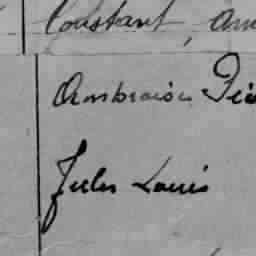 Constant, Am
Ambroise Pie
Jules Louis